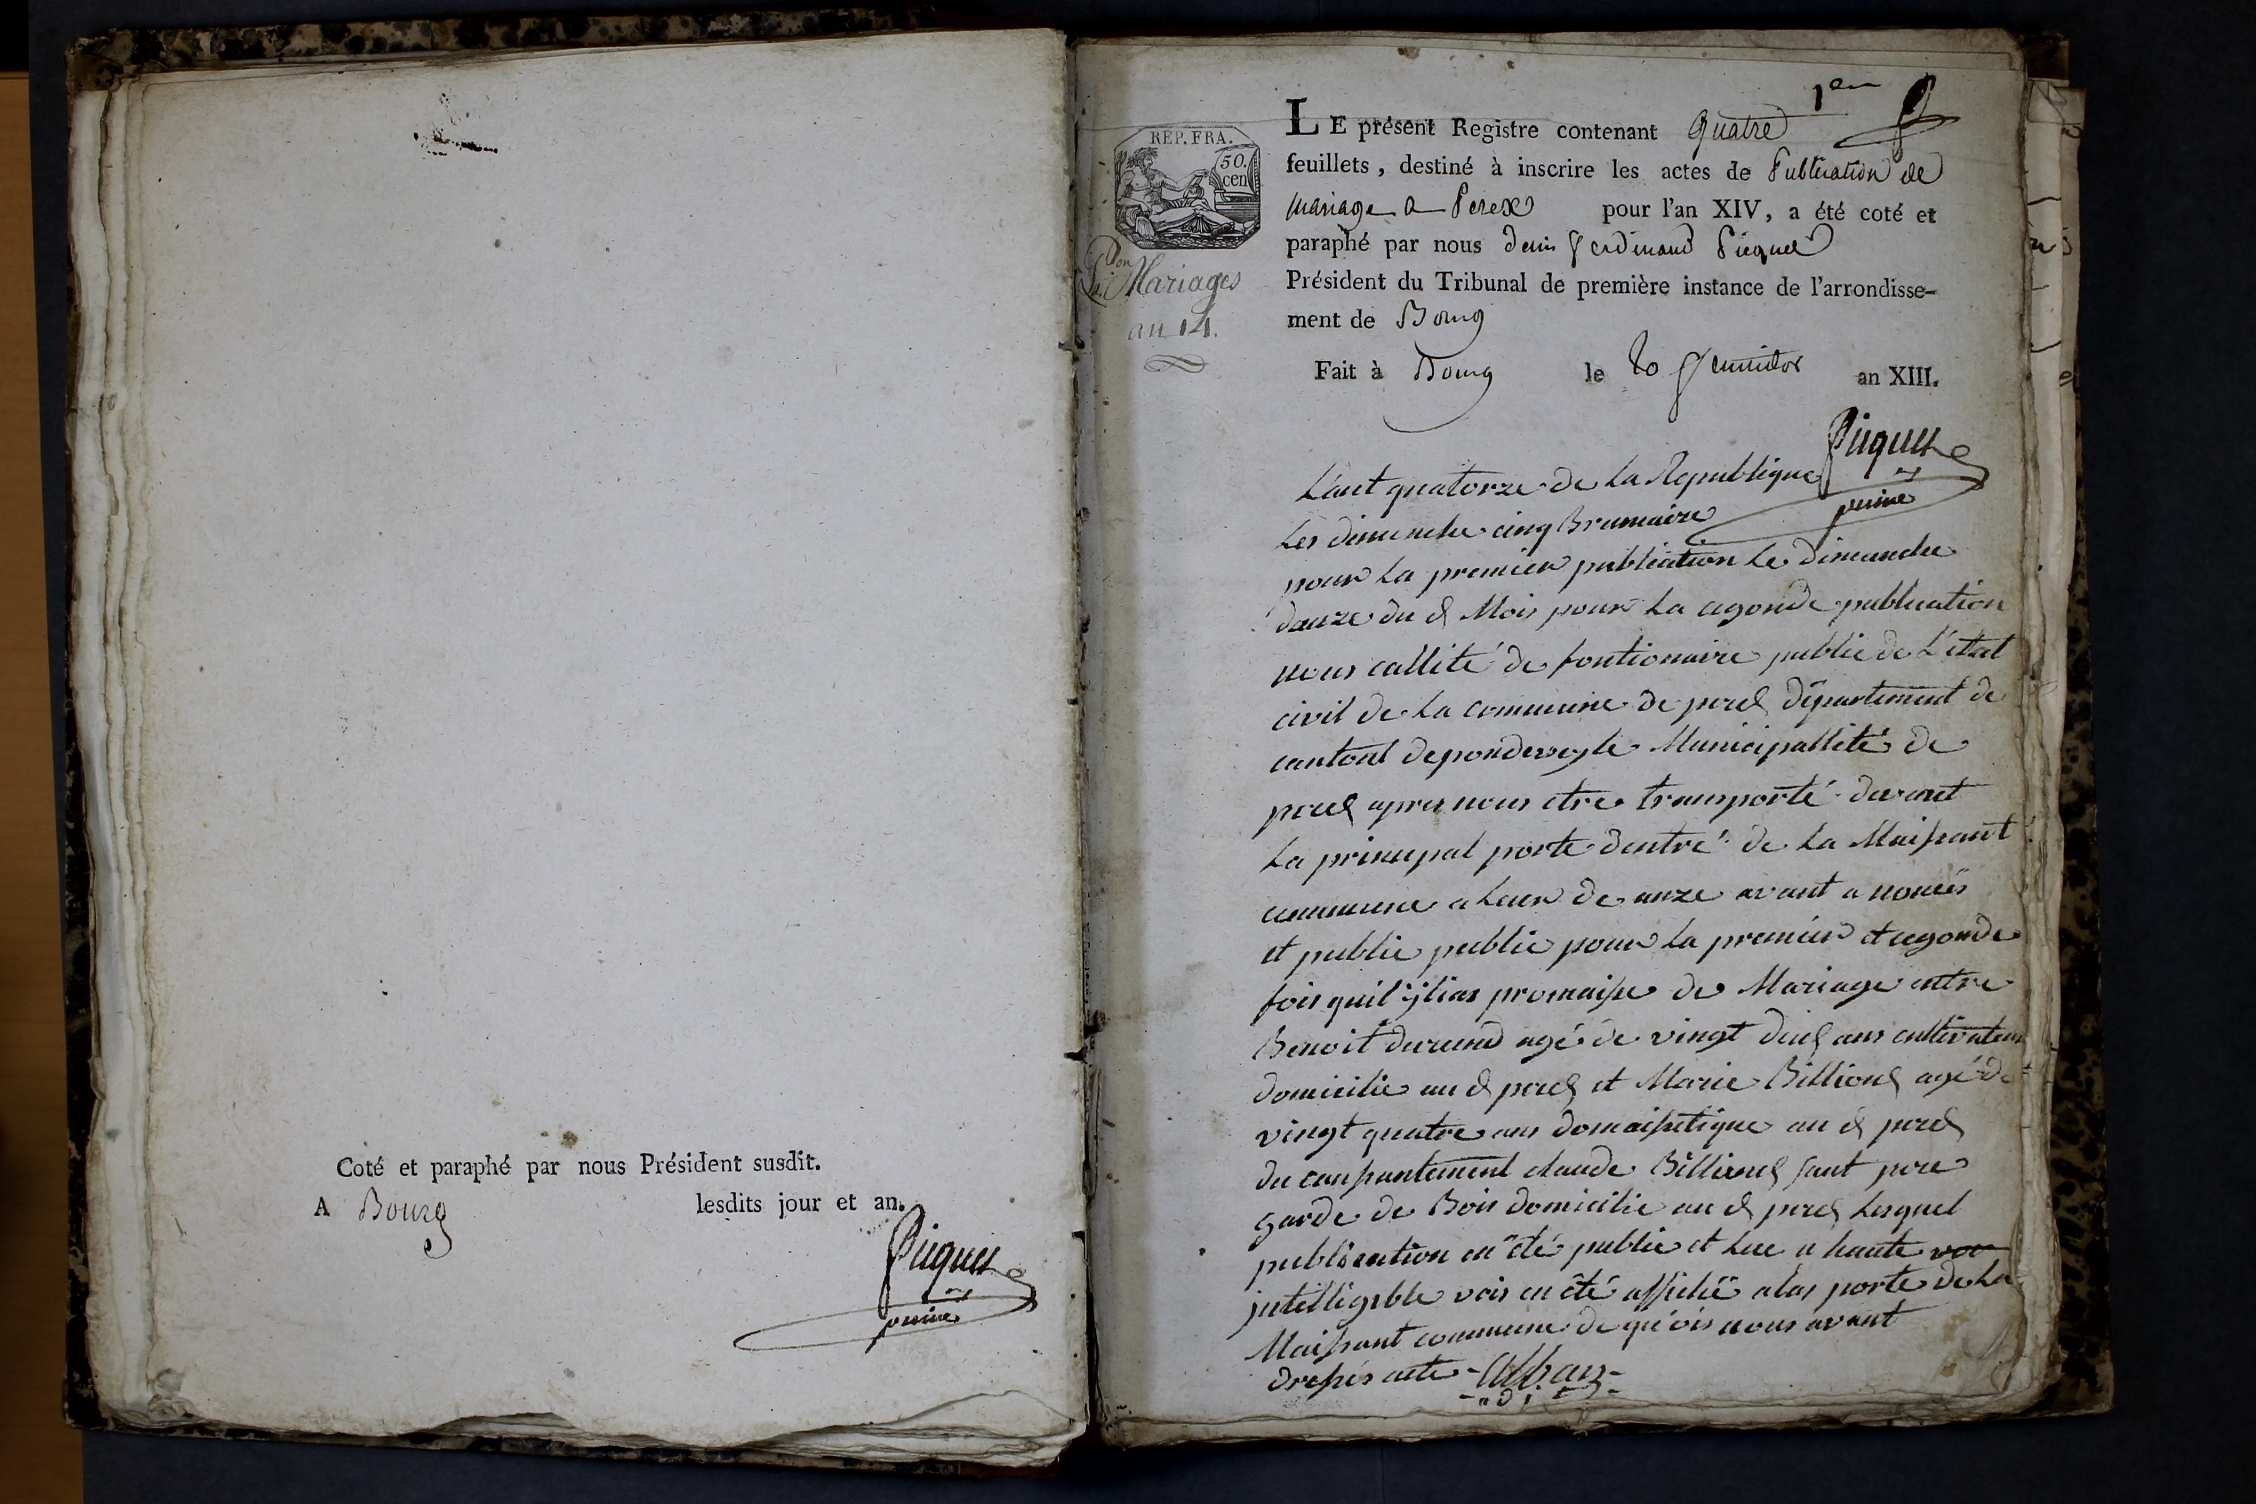 Coté et paraphé par nous Président susdit.
A Bourg lesdits jour et an.
Picquet
1er
REP. FRA.
50.
cen
Mariages
an 14.
LE présent Registre contenant quatre
feuillets, destiné à inscrire les actes de Publication de
mariage a Perex pour l'an XIV, a été coté et
paraphé par nous denis ferdinand Picquet
Président du Tribunal de première instance de l'arrondisse-
ment de Bourg
Fait à Bourg le an XIII.
Picquet
L'ant quatorze de La Republique
Les dimanche cinq Brumaire
pour La premier publication Le dimanche
douze du d Mois pour La cegonde publication
nous callité de fontionaire public de L'état
civil de La commune de perex département de
cantont depondeveyle Municipallité de
perex apres nous etre transporté devant
La principal porte dentré de La Maissant
commune a Leur de onze avant a noncés
et public public pour La premier et cegonde
fois quil ylias promaisse de Mariage entre
Benoit durand agé de vingt deux ans cultivateur
domicilie au d perex et Marie Billioux agé de
vingt quatre ans domaisstique au d perex
du conssantement claude Billioux sant pere
garde de Bois domicilie au d perex Lesquel
publication on été public et Lue a haute
intelligible vois on été affiché alas porte de La
Maissant commune de quois nous avant
dressés acte